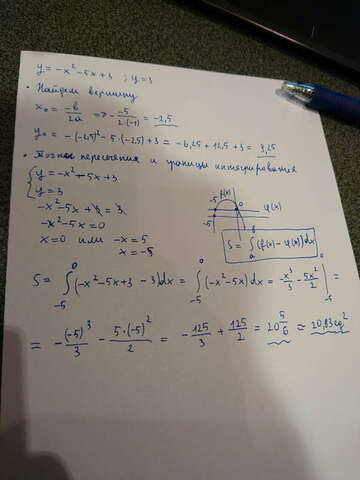 y = -x² - 5x + 3 ; y = 3
• Найдем вершину
x₀ = -b/2a => - -5/2·(-1) = -2,5
y₀ = -(-2,5)² - 5·(-2,5) + 3 = -6,25 + 12,5 + 3 = 9,25
• Точки пересечения и границы интегрирования
{ y = -x² - 5x + 3
y = 3
f(x)
-x² - 5x + 3 = 3
-5 0 φ(x)
-x² - 5x = 0
-5
x = 0 или -x = 5
x = -5
S = ∫ₐᵇ (f(x) - φ(x)) dx
S = ∫₋₅⁰ (-x² - 5x + 3 - 3) dx = ∫₋₅⁰ (-x² - 5x) dx = -x³/3 - 5x²/2 |₋₅⁰ =
= -(-5)³/3 - 5·(-5)²/2 = -125/3 + 125/2 = 20 5/6 ≈ 20,83 ед²